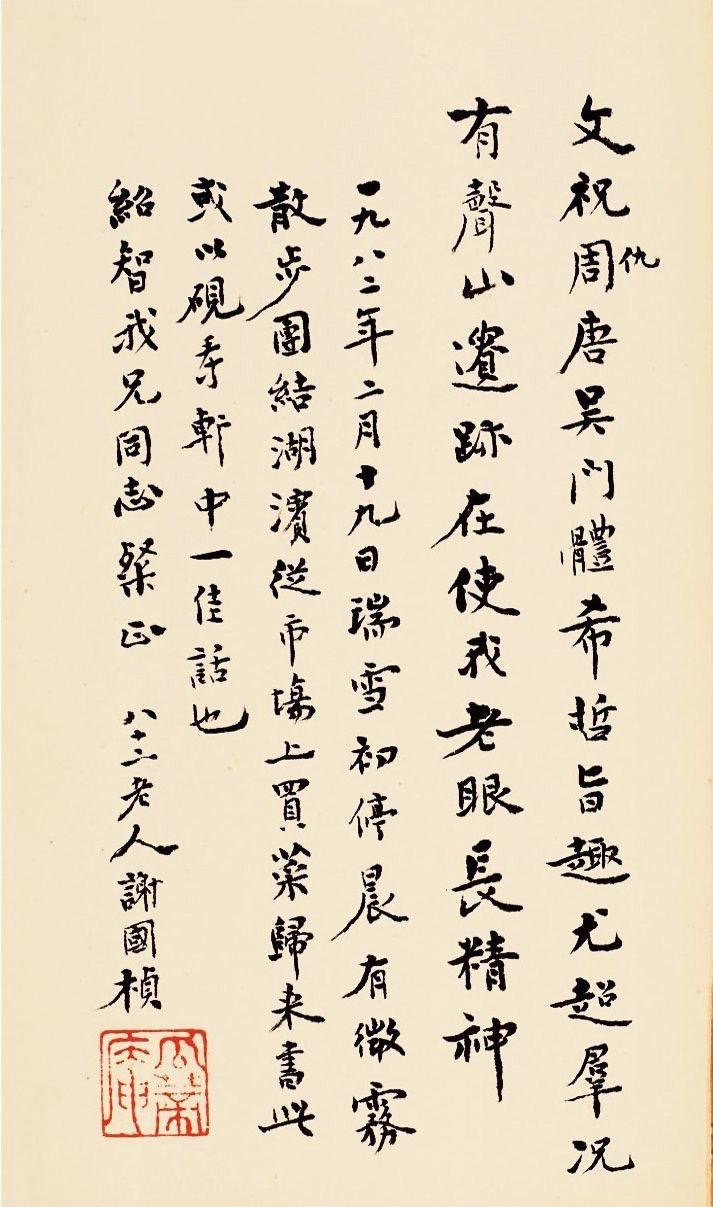 文祝周仇唐吴门體希哲旨趣尤超羣况
有聲山遺跡在使我老眼長精神
一九八二年二月十九日瑞雪初停晨有微霧
散步團結湖濱從市場上買菜歸来書此
或以硯秉軒中一佳話也
紹智我兄同志粲正 八十二老人謝國楨